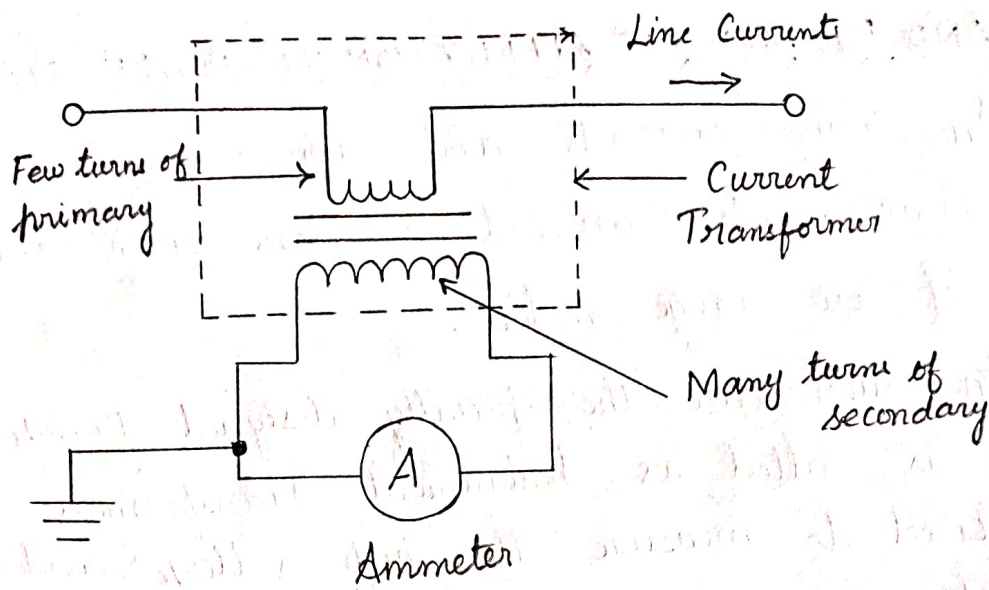 Line Current
Few turns of
primary
Current
Transformer
Many turns of
secondary
A
Ammeter